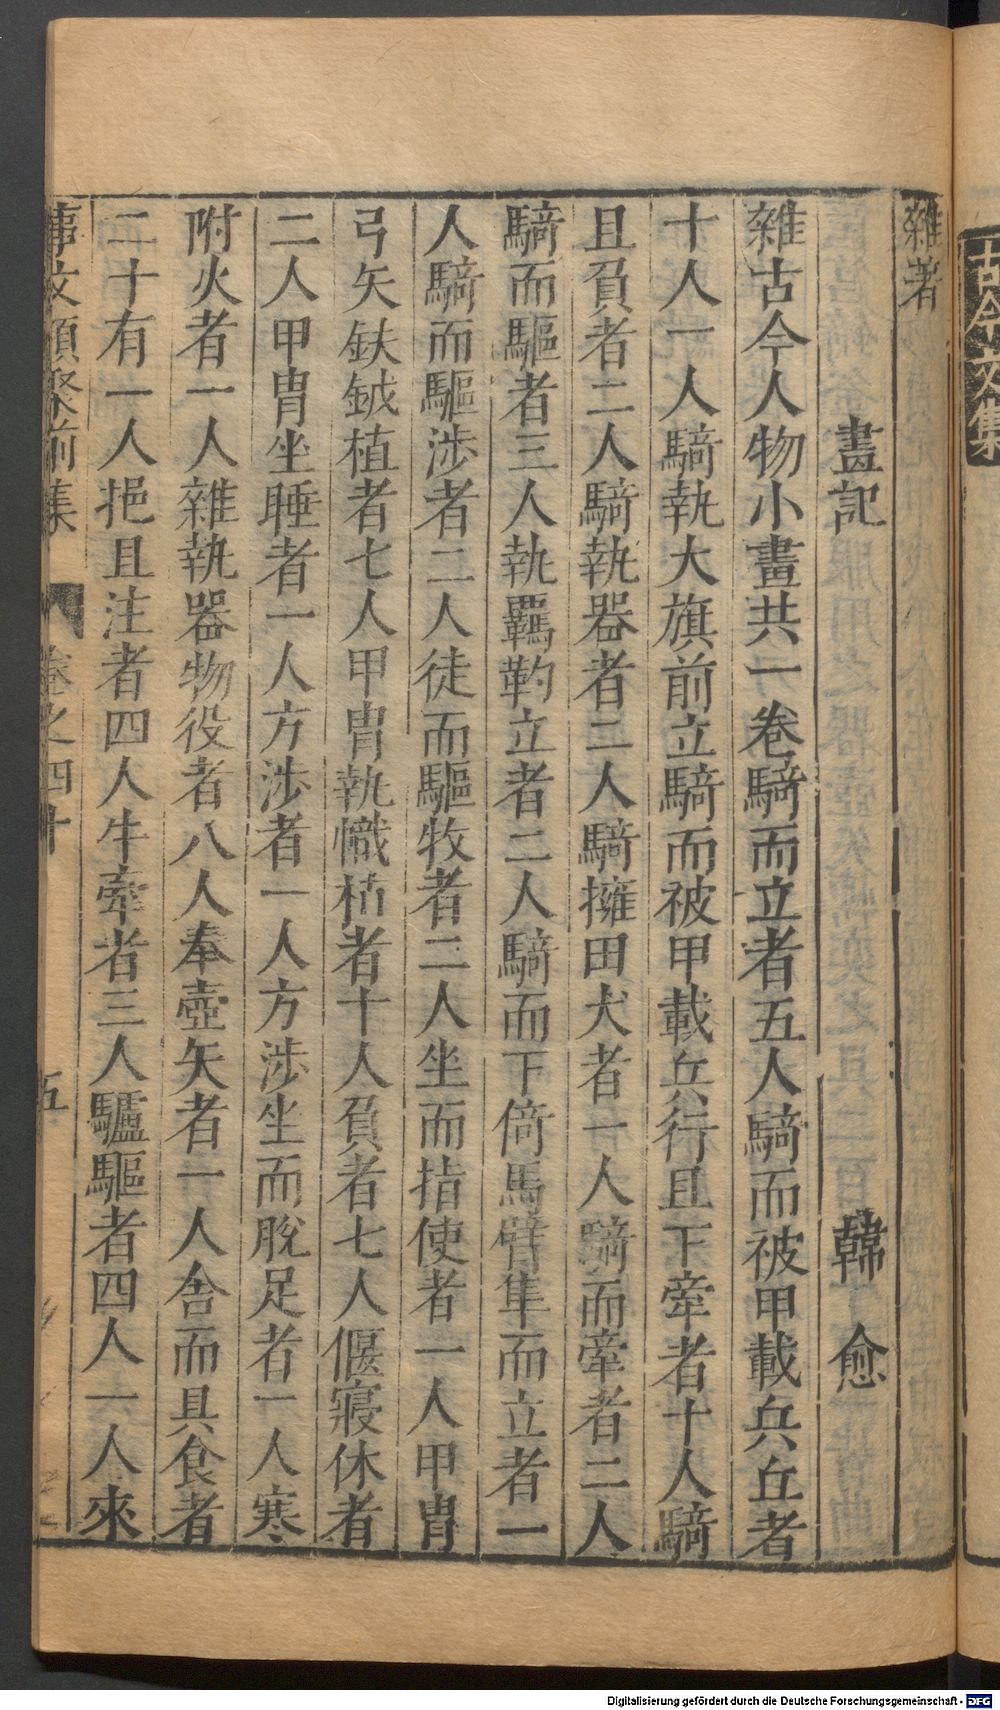 古今文集
雜著
畫記 韓愈
雜古今人物小畫共一卷騎而立者五人騎而被甲載兵丘者
十人一人騎執大旗前立騎而被甲載兵行且下牽者十人騎
且負者二人騎執器者二人騎擁田犬者一人騎而牽者二人
騎而驅者三人執羈靮立者二人騎而下倚馬臂隼而立者一
人騎而驅涉者二人徒而驅牧者二人坐而指使者一人甲冑
弓矢鈇鉞植者七人甲冑執幟植者十人負者七人偃寢休者
二人甲冑坐睡者一人方涉者一人方涉坐而脫足者一人寒
附火者一人雜執器物役者八人奉壺矢者一人舍而具食者
二十有一人挹且注者四人牛牽者三人驢驅者四人一人來
事文類聚前集 卷之四十 五
Digitalisierung gefördert durch die Deutsche Forschungsgemeinschaft - DFG